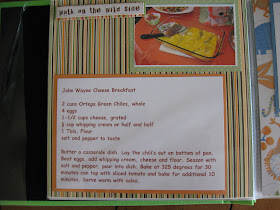 Walk on the wild side
John Wayne Cheese Breakfast
2 cans Ortega Green Chiles, whole
4 eggs
1-1/2 cups cheese, grated
cup whipping cream or half and half
1 Tbls. Flour
salt and pepper to taste
Butter a casserole dish. Lay the chili's out on bottom of pan.
Beat eggs, add whipping cream, cheese and flour. Season with
salt and pepper, pour into dish. Bake at 325 degrees for 30
minutes can top with sliced tomato and bake for additional 10
minutes. Serve warm with salsa.